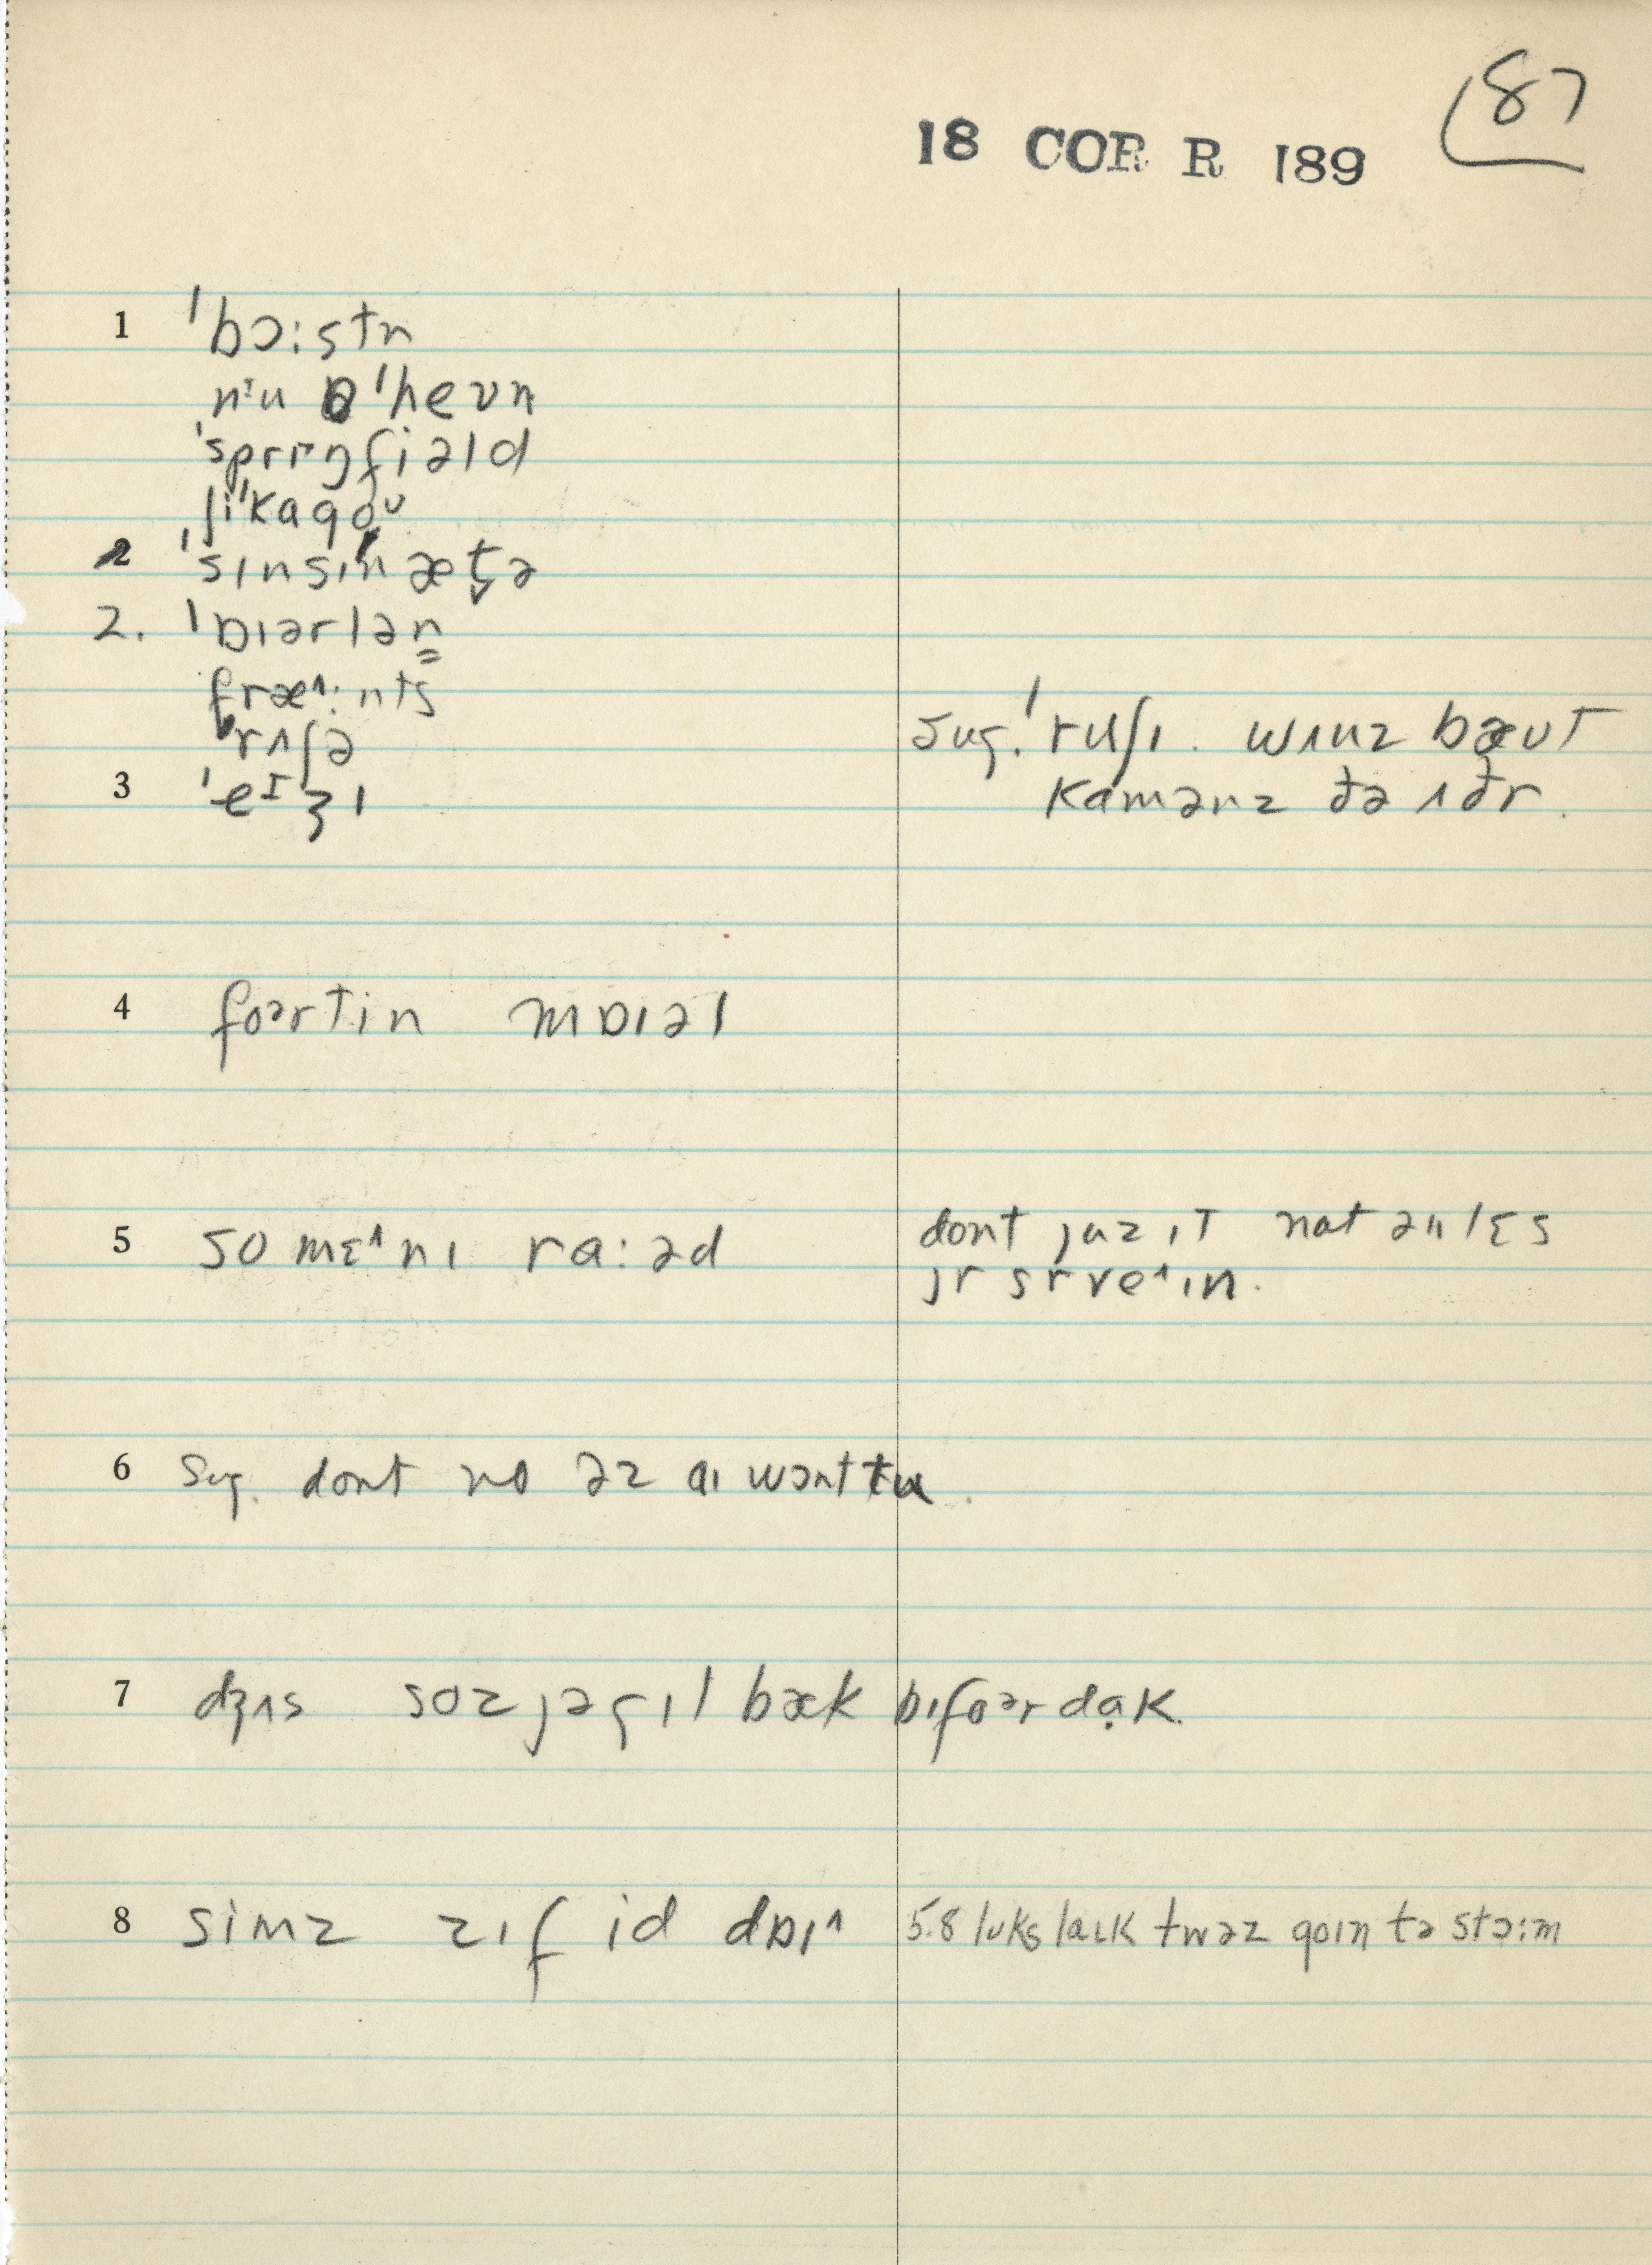 87
18 COR R 189
1 ˈbɔ:stn
nᶦu ˈhevn
ˈsprɪᵊŋfiəld
ʃiˈkagoᶷ
2 ˈsɪnsɪˈnæt̬ə
2. ˈɒɪərlən
fræ^:nts
ˈrʌʃə
sug. ˈruʃɪ. wʌnz bæut
3 ˈeᶦʒɪ
kamənz ðə ʌðr.
4 foᵊrtin mɒɪəl
5 so mɛ^nɪ ra:əd
dont juz ɪt nat ənlɛs
jr srve^ɪn.
6 sug. dont no əz aɪ wɔnt tu.
7 dʒʌs soz jə gɪl bæk bɪfoᵊr dạk.
8 simz zɪf id dɒɪ^
5.8 lʊks laɪk twəz goɪn tə stɔ:m